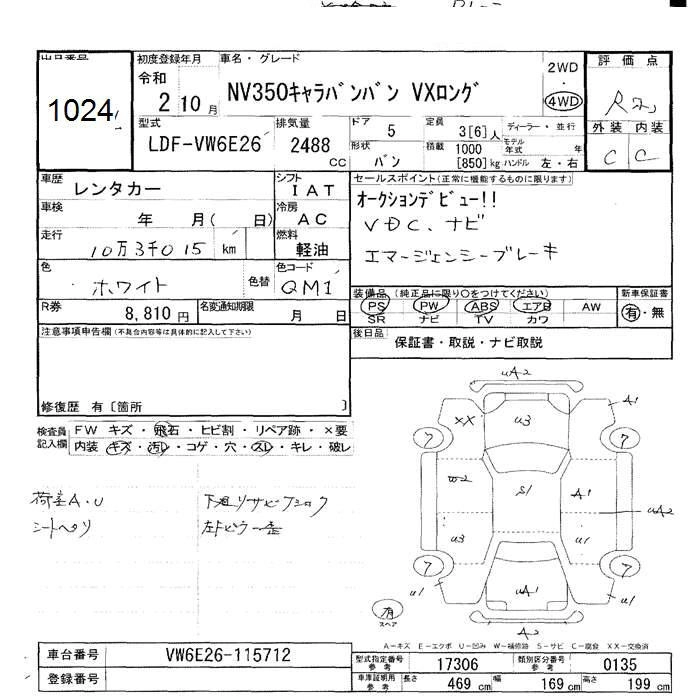 出品番号
1024
初度登録年月
令和
2 10月
車名・グレード
NV350キャラバンバン VXロング
2WD
・
4WD
評価点
外装 内装
C C
型式
LDF-VW6E26
排気量
2488
CC
ドア
5
形状
バン
定員
3[6]人
積載
1000
[850]kg
ディーラー・並行
モデル
年式
年
ハンドル 左・右
車歴
レンタカー
シフト
IAT
車検
年 月( 日)
冷房
AC
走行
10万3千015 km
燃料
軽油
色
ホワイト
色替
色コード
QM1
R券
8,810円
名変通知期限
月 日
セールスポイント(正常に機能するものに限ります)
オークションデビュー!!
VDC、ナビ
エマージェンシーブレーキ
装備品 (純正品に限り○をつけてください)
PS PW ABS エアB AW
SR ナビ TV カワ
新車保証書
有・無
後日品
保証書・取説・ナビ取説
注意事項申告欄(不具合内容等は具体的に記入して下さい)
修復歴 有〔箇所 〕
検査員
記入欄
FW キズ・飛石・ヒビ割・リペア跡・×要
内装 キズ・汚レ・コゲ・穴・スレ・キレ・破レ
荷室A.U
シートヘリ
下廻りサビ
uA2
XX
A1
u3
7
7
W2
S1
A1
uA2
u3
u1
7
7
u1
uA1
u1
A2
有
スペア
A-キズ E-エクボ U-凹み W-補修跡 S-サビ C-腐食 XX-交換済
車台番号
VW6E26-115712
登録番号
型式指定番号
参考
17306
類別区分番号
参考
0135
車庫証明用
参考
長さ
469 cm
幅
169 cm
高さ
199 cm